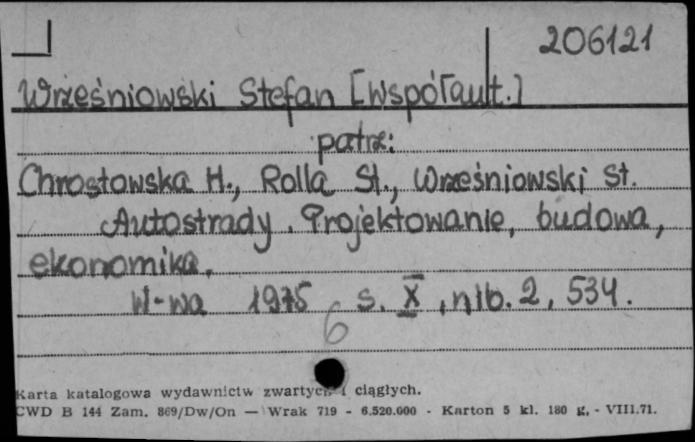 206121
Wrześniowski Stefan [współaut.]
patrz:
Chrostowska H., Rolla St., Wrześniowski St.
Autostrady. Projektowanie, budowa,
ekonomika.
W-wa 1975 s. X, nlb. 2, 534.
6
Karta katalogowa wydawnictw zwartych i ciągłych.
CWD B 144 Zam. 869/Dw/On — Wrak 719 - 6.520.000 - Karton 5 kl. 180 g. - VIII.71.